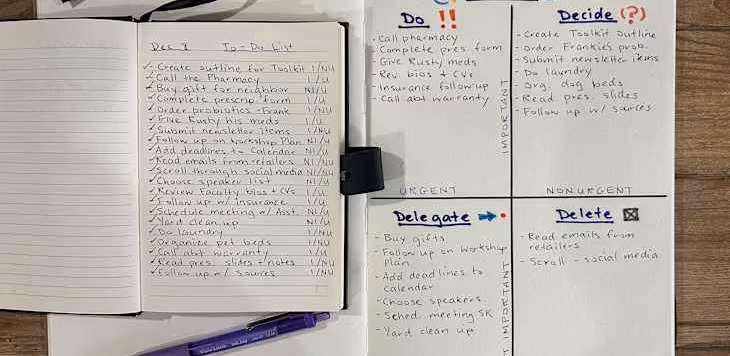 Dec 3 To-Do List
✓- Create outline for Toolkit I/NU
✓- Call the Pharmacy I/U
✓- Buy gift for neighbor NI/U
✓- Complete prescrip form I/U
✓- Order probiotics - Frank I/NU
✓- Give Rusty his meds I/U
✓- Submit newsletter items I/NU
✓- Follow up on Workshop Plan NI/U
✓- Add deadlines to Calendar NI/U
✓- Read emails from retailers NI/NU
✓- Scroll through social media NI/NU
✓- Choose speaker list NI/U
✓- Review Faculty bios + CVs I/U
✓- Follow up w/ insurance I/U
✓- Schedule meeting w/ Asst. NI/U
✓- Yard clean up NI/U
✓- Do laundry I/NU
✓- Organize pet beds I/NU
✓- Call abt warranty I/U
✓- Read pres. slides + notes I/NU
✓- Follow up w/ sources I/NU
Do !!
- Call pharmacy
- Complete pres. form
- Give Rusty meds
- Rev. bios + CVs
- Insurance follow up
- Call abt warranty
URGENT
IMPORTANT
Decide (?)
- Create Toolkit Outline
- Order Frankie's prob.
- Submit newsletter items
- Do laundry
- Org. dog beds
- Read pres. slides
- Follow up w/ sources
NONURGENT
Delegate
- Buy gifts
- Follow up on Workshop
plan
- Add deadlines to
calendar
- Choose speakers
- Sched. meeting SK
- Yard clean up
IMPORTANT
Delete
- Read emails from
retailers
- Scroll - social media